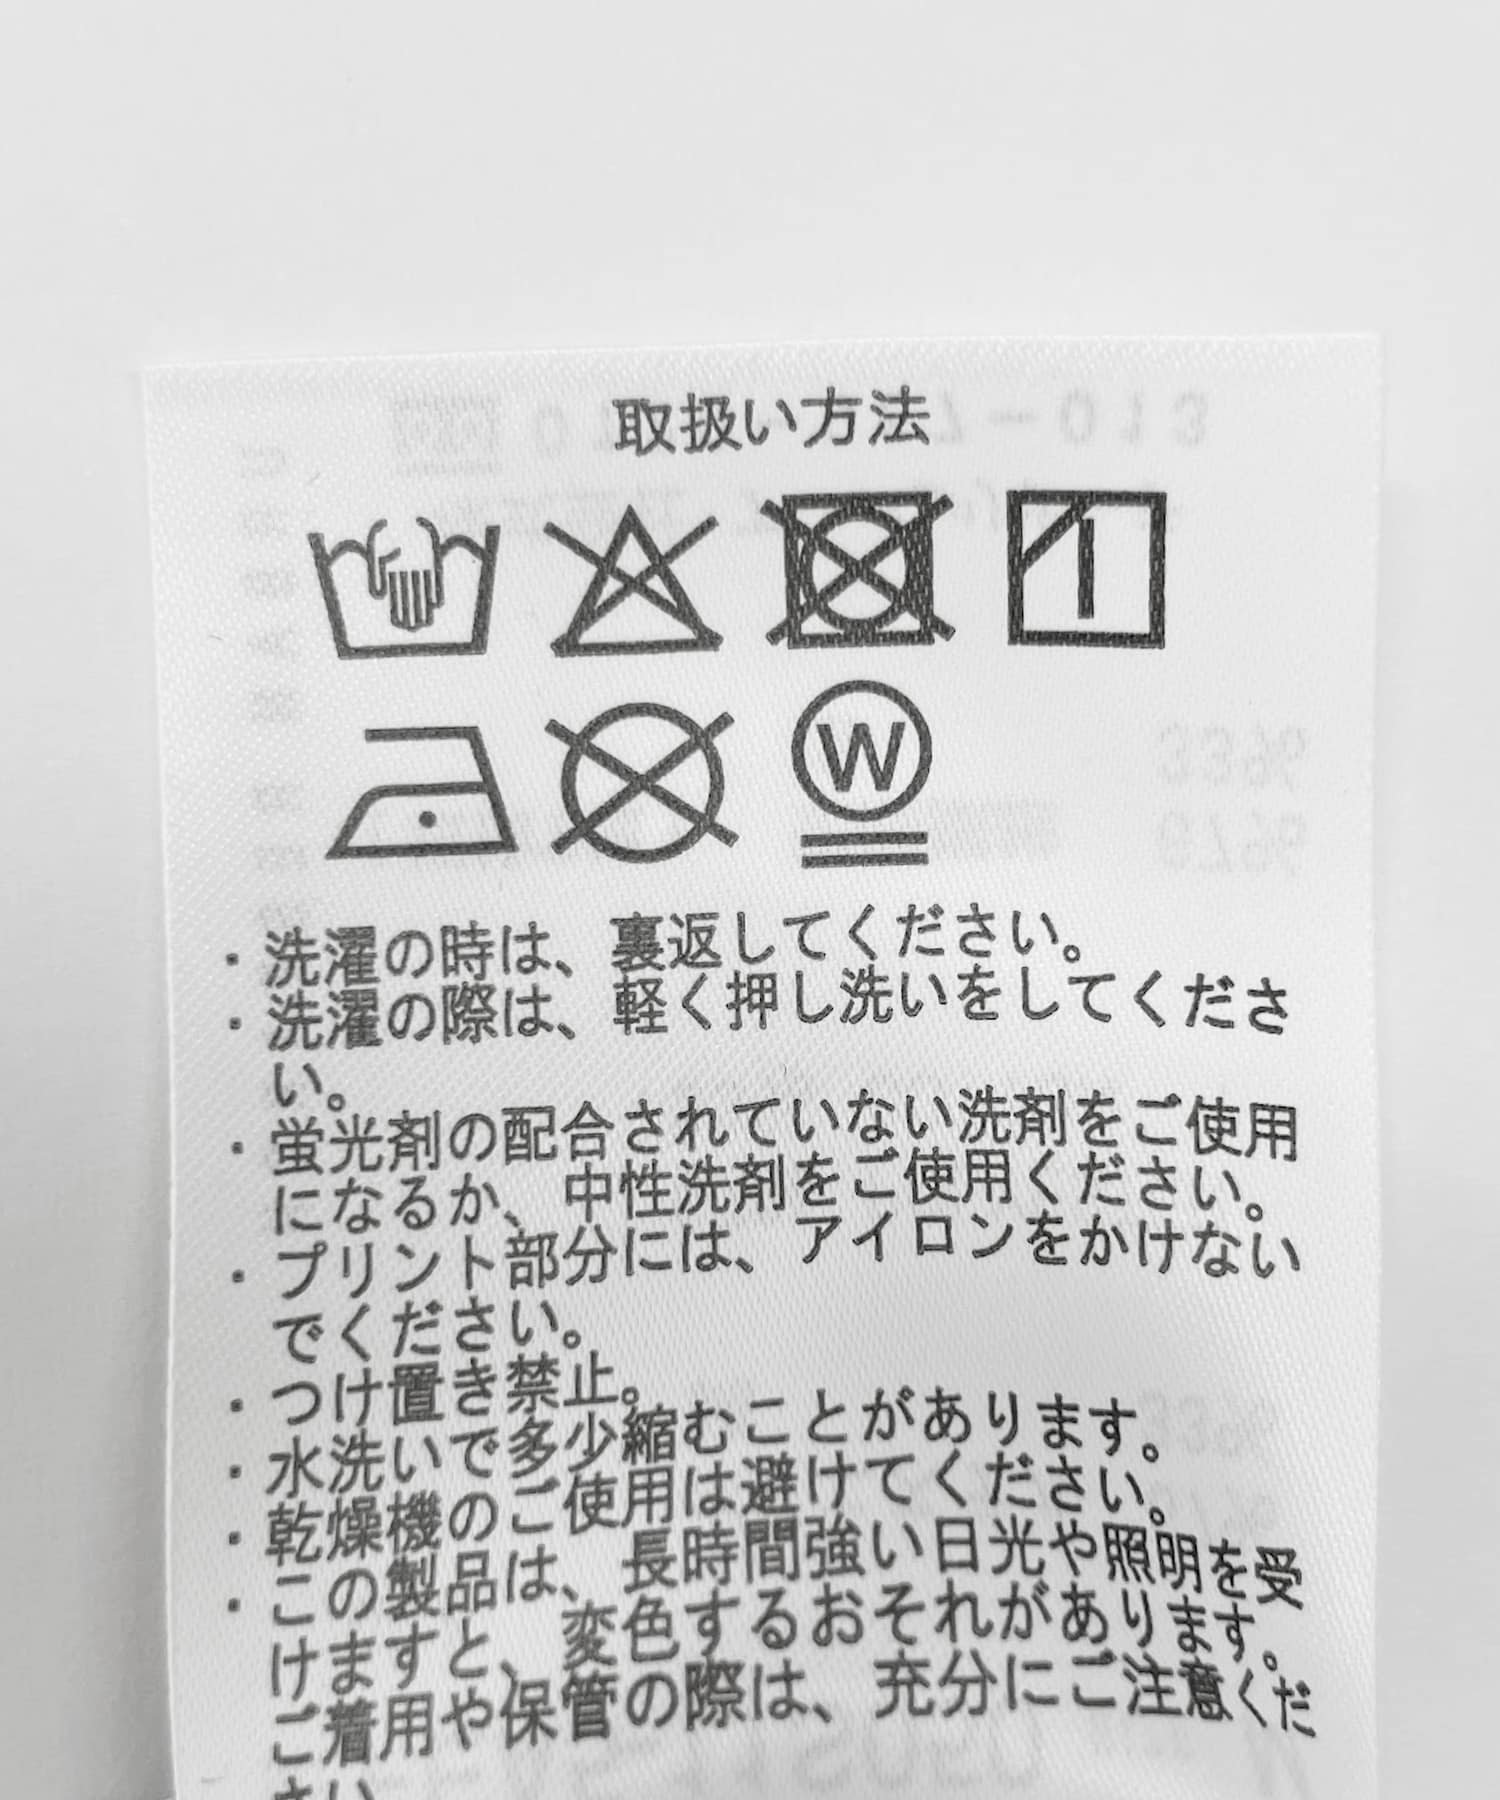 取扱い方法
W
・洗濯の時は、裏返してください。
・洗濯の際は、軽く押し洗いをしてくださ
い。
・蛍光剤の配合されていない洗剤をご使用
になるか、中性洗剤をご使用ください。
・プリント部分には、アイロンをかけない
でください。
・つけ置き禁止。
・水洗いで多少縮むことがあります。
・乾燥機のご使用は避けてください。
・この製品は、長時間強い日光や照明を受
けますと、変色するおそれがあります。
ご着用や保管の際は、充分にご注意くだ
さい